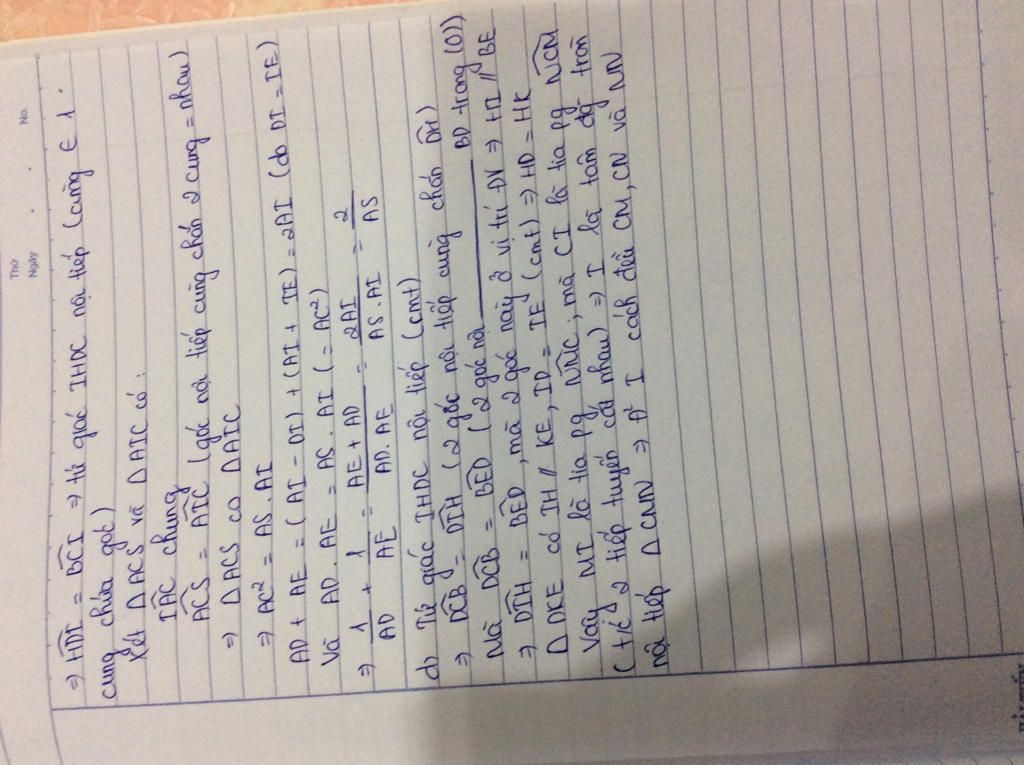 Thứ
Ngày
No.
⇒ HDI = BCI ⇒ tứ giác IHDC nội tiếp (cùng ∈ 1
cung chứa góc)
Xét ΔACS và ΔAIC có:
IAC chung
ACS = AIC (góc nội tiếp cùng chắn 2 cung = nhau)
⇒ ΔACS ∽ ΔAIC
⇒ AC² = AS.AI
AD + AE = (AI - DI) + (AI + IE) = 2AI (do DI = IE)
Và AD.AE = AS.AI (= AC²)
⇒ 1/AD + 1/AE = AE + AD/AD.AE = 2AI/AS.AI = 2/AS
d) Tứ giác IHDC nội tiếp (cmt)
⇒ DCB = DIH (2 góc nội tiếp cùng chắn DH)
Mà DCB = BED (2 góc nội ——— BD trong (O))
⇒ DIH = BED, mà 2 góc này ở vị trí ĐV ⇒ HI // BE
ΔDKE có IH // KE, ID = IE (cmt) ⇒ HD = HK
Vậy MI là tia pg NMC, mà CI là tia pg NCM
(t/c 2 tiếp tuyến cắt nhau) ⇒ I là tâm đg tròn
nội tiếp ΔCMN ⇒ Đ² I cách đều CM, CN và MN
HẢI TIẾN